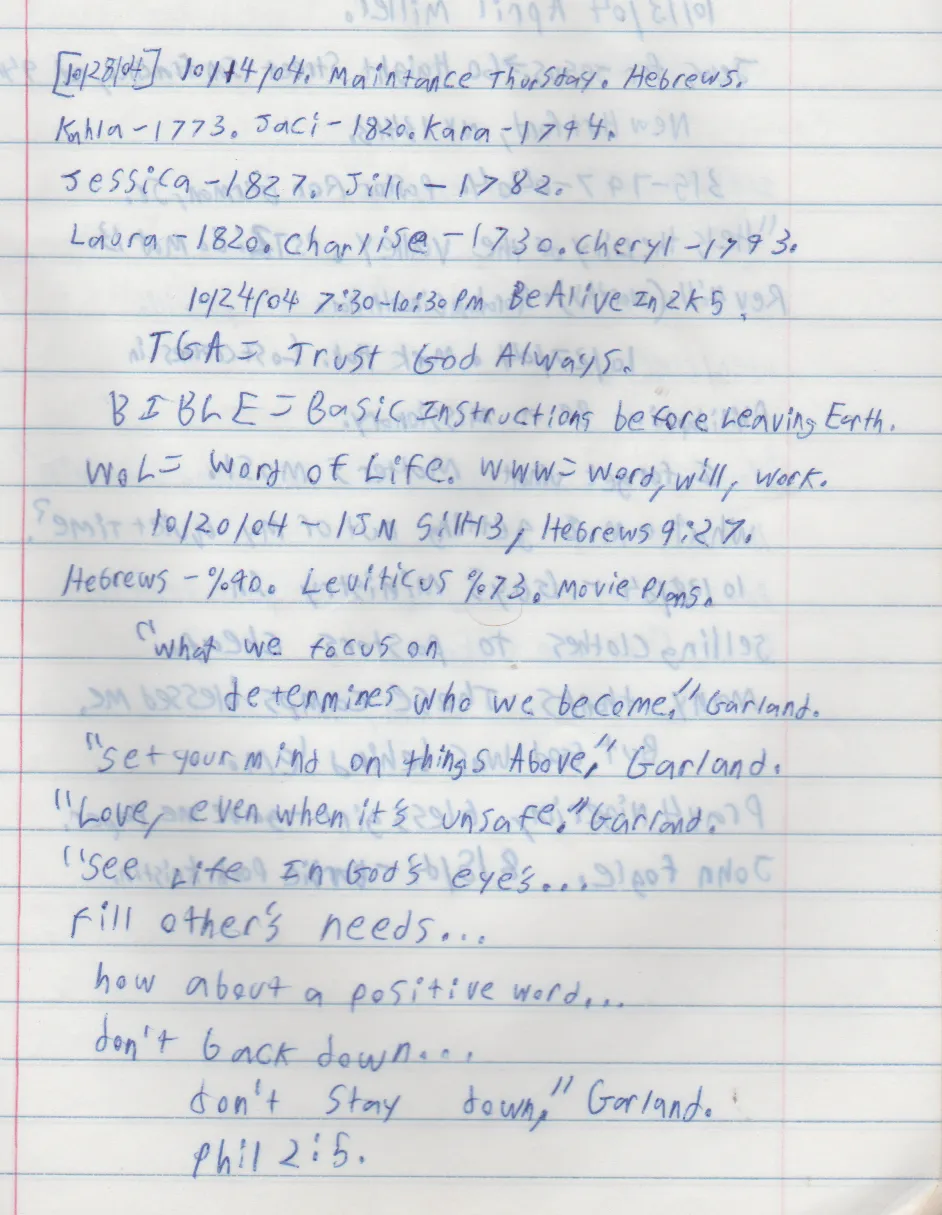 [10/28/04] 10/14/04. Maintance Thursday. Hebrews.
Kahla - 1773. Jaci - 1820. Kara - 1794.
Jessica - 1827. Jill - 1782.
Laura - 1820. Charlise - 1730. Cheryl - 1793.
10/24/04 7:30-10:30 PM Be Alive In 2K5.
TGA = Trust God Always.
BIBLE = Basic Instructions before Leaving Earth.
WOL = Word of Life. WWW = Word, will, work.
10/20/04 - 1JN 5:11-13, Hebrews 9:27.
Hebrews - %90. Leviticus %73. Movie Plans.
"What we focus on
determines who we become," Garland.
"Set your mind on things Above," Garland.
"Love, even when it's unsafe." Garland.
"See Life In God's eye's...
Fill other's needs...
how about a positive word...
don't back down...
don't stay down," Garland.
Phil 2:5.